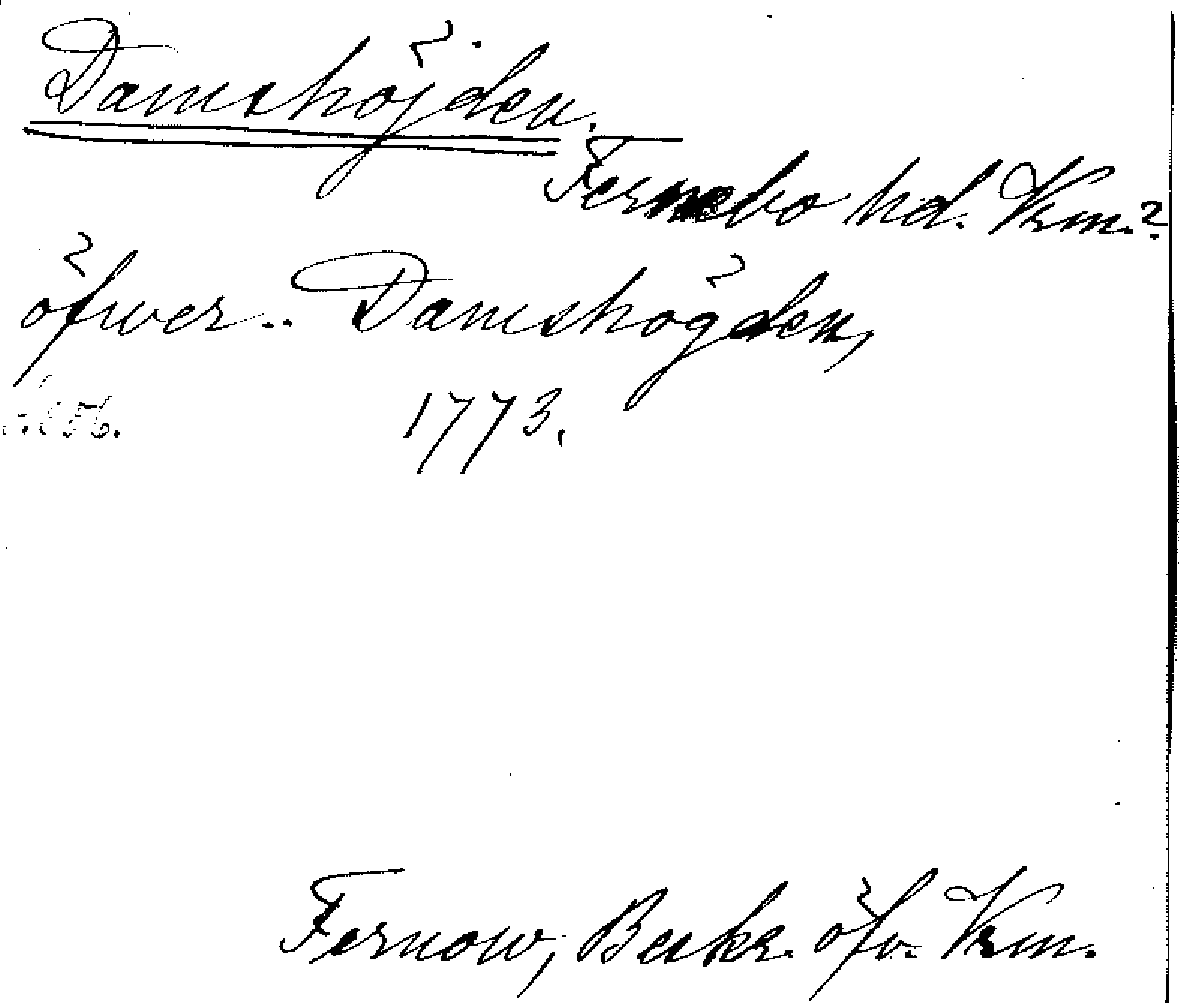 Damshöjden.
Fernebo hd. Vrm.?
öfwer.. Damshögden,
1773.
Fernow, Beskr. öfv. Vrm.